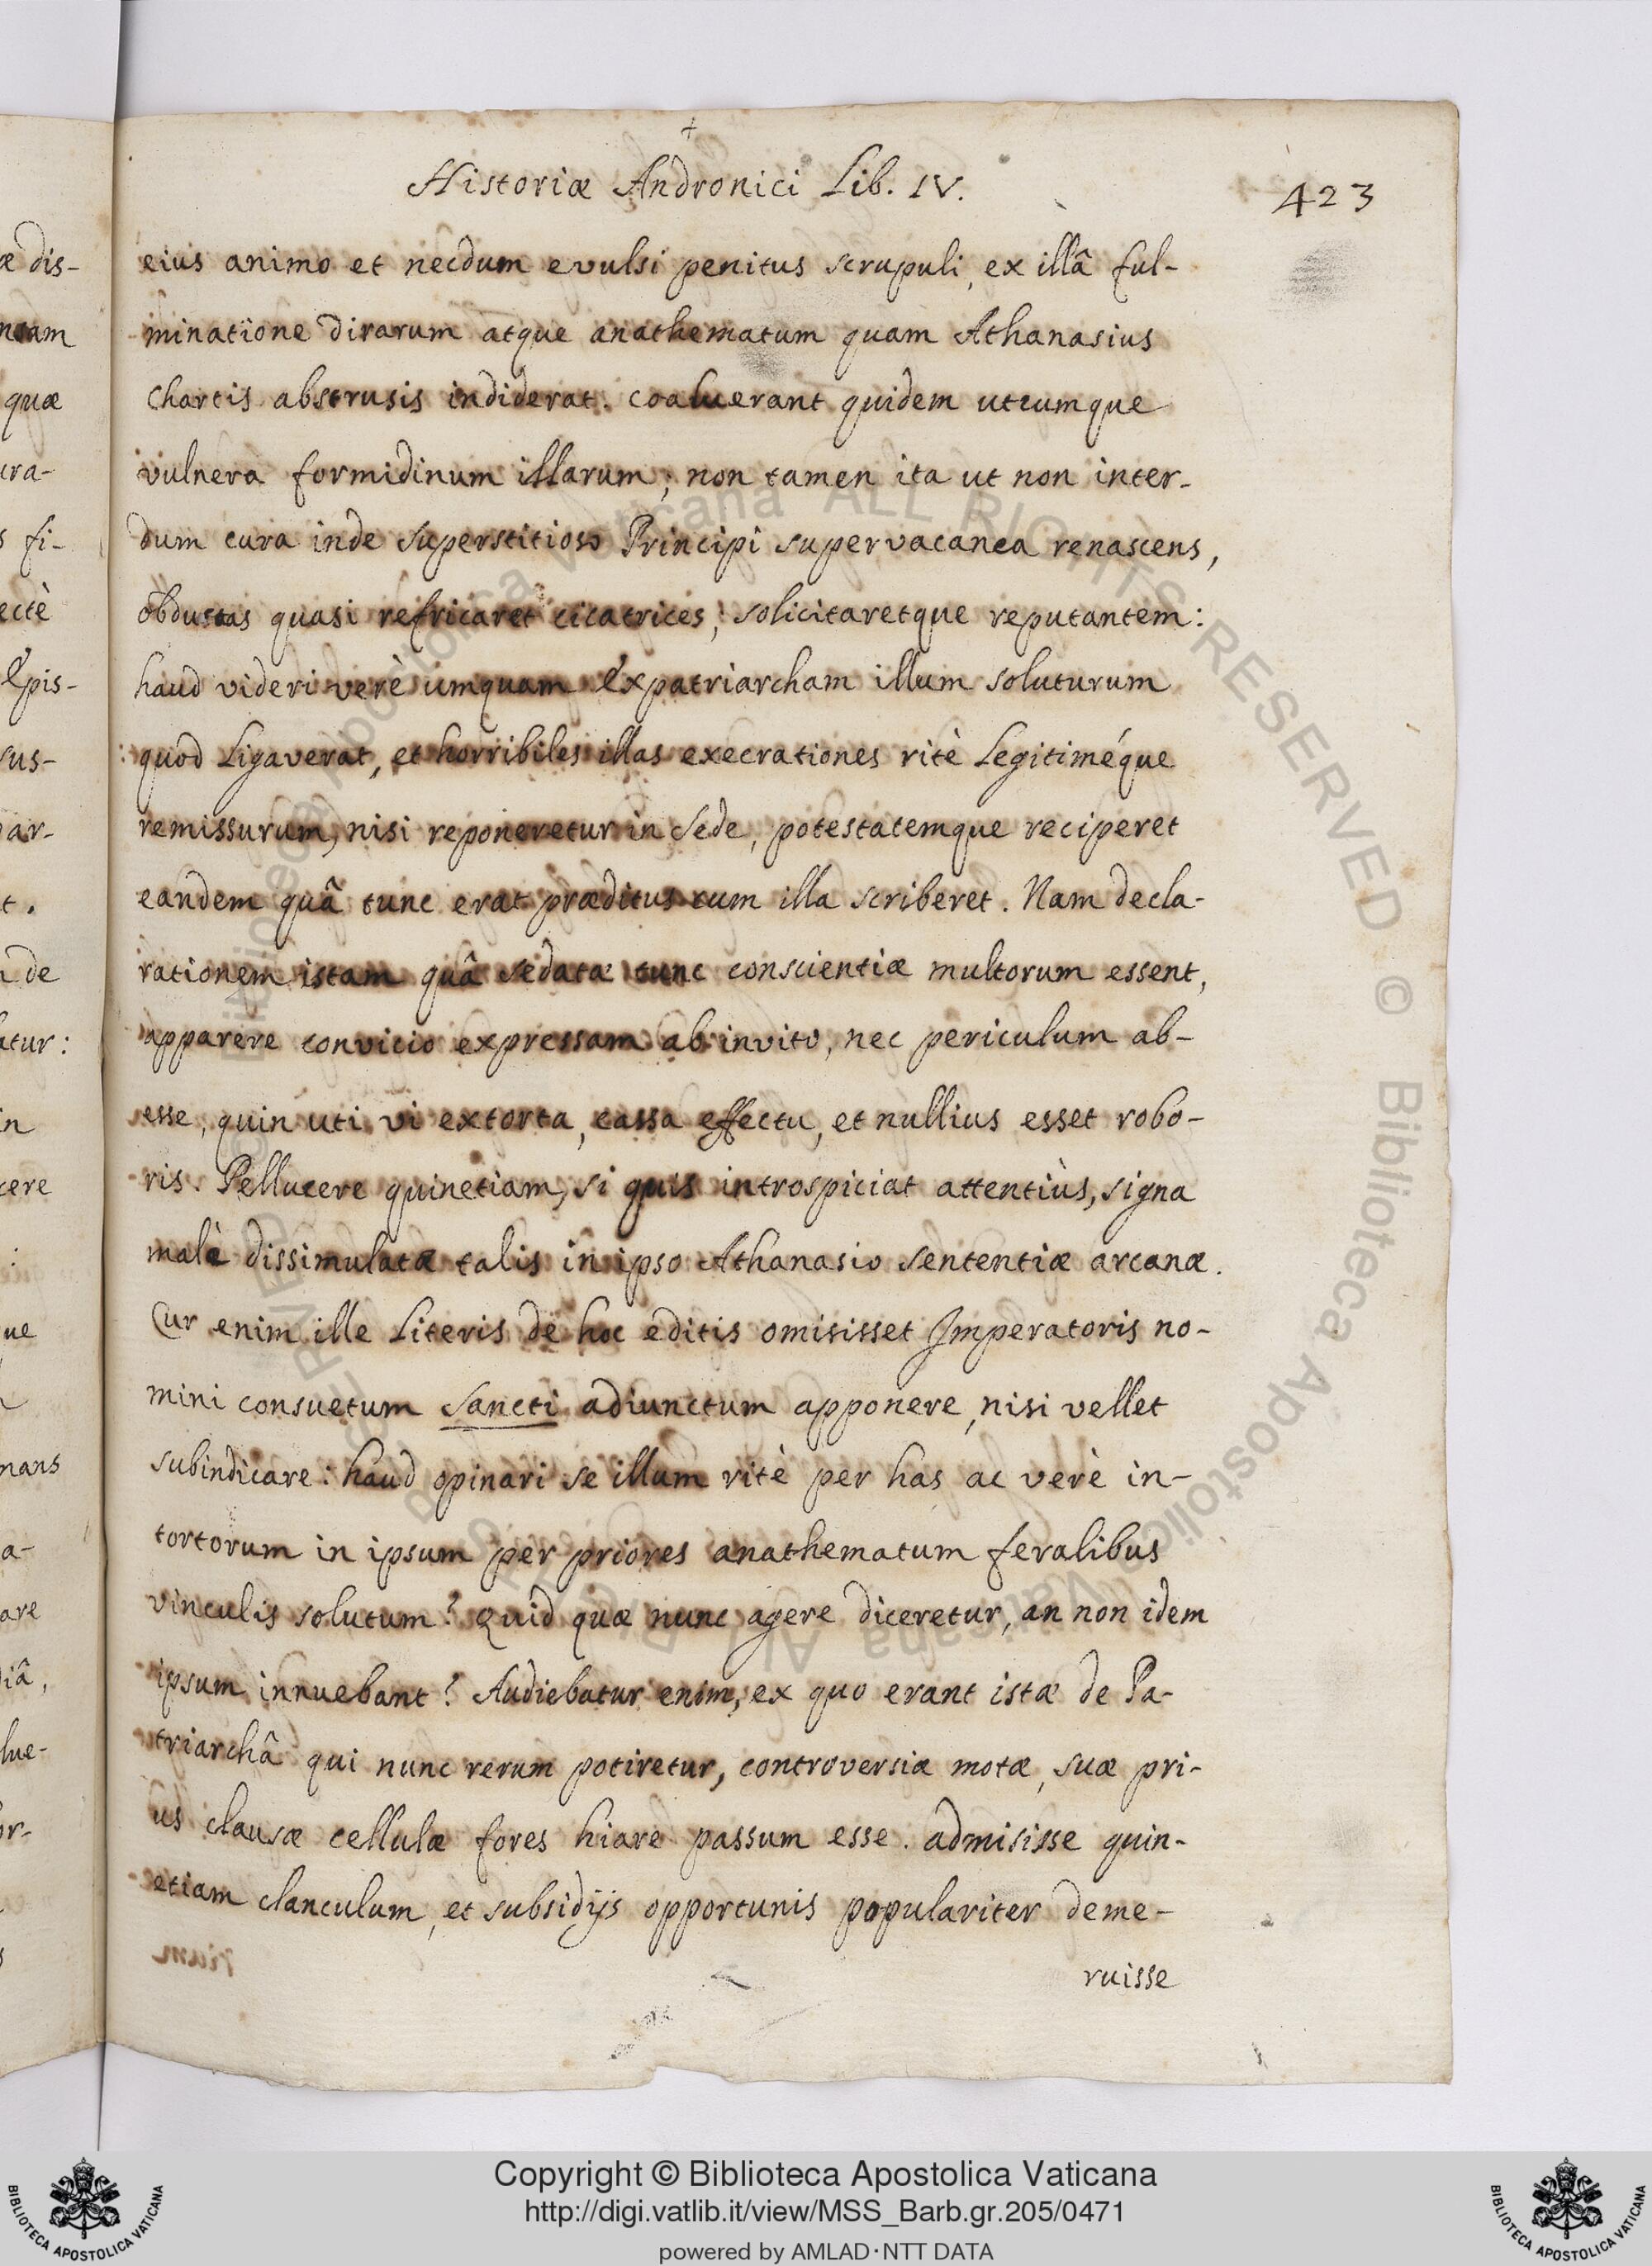 Historiæ Andronici Lib. IV.
423
eius animo et necdum evulsi penitus scrupuli, ex illâ ful-
minatione dirarum atque anathematum quam Athanasius
chartis abstrusis indiderat. coaluerant quidem utcumque
vulnera formidinum illarum; non tamen ita ut non inter-
dum cura inde superstitioso Principi supervacanea renascens,
obductas quasi refricaret cicatrices, solicitaretque reputantem:
haud videri verè umquam Expatriarcham illum soluturum
quod Ligaverat, et horribiles illas execrationes ritè Legitiméque
remissurum, nisi reponeretur in sede, potestatemque reciperet
eandem quâ tunc erat præditus cum illa scriberet. Nam decla-
rationem istam quâ sedatæ tunc conscientiæ multorum essent,
apparere convicio expressam ab invito, nec periculum ab-
esse, quin uti vi extorta, cassa effectu, et nullius esset robo-
ris. Pellucere quinetiam, si quis introspiciat attentiùs, signa
malè dissimulatæ talis in ipso Athanasio sententiæ arcanæ.
Cur enim ille Literis de hoc editis omisisset Imperatoris no-
mini consuetum sancti adiunctum apponere, nisi vellet
subindicare: haud opinari se illum ritè per has ac verè in-
tortorum in ipsum per priores anathematum feralibus
vinculis solutum? Quid quæ nunc agere diceretur, an non idem
ipsum innuebant? Audiebatur enim, ex quo erant istæ de Pa-
triarchâ qui nunc rerum potiretur, controversiæ motæ, suæ pri-
us clausæ cellulæ fores hiare passum esse. admisisse quin-
etiam clanculum, et subsidijs opportunis populariter deme-
ruisse
æ dis-
quæ
fi-
ectè
Epis-
sus-
ar-
t.
de
atur:
in
cere
ue
mans
a-
are
diâ,
lue-
or-
Copyright © Biblioteca Apostolica Vaticana
http://digi.vatlib.it/view/MSS_Barb.gr.205/0471
powered by AMLAD·NTT DATA
BIBLIOTECA APOSTOLICA VATICANA
BIBLIOTECA APOSTOLICA VATICANA